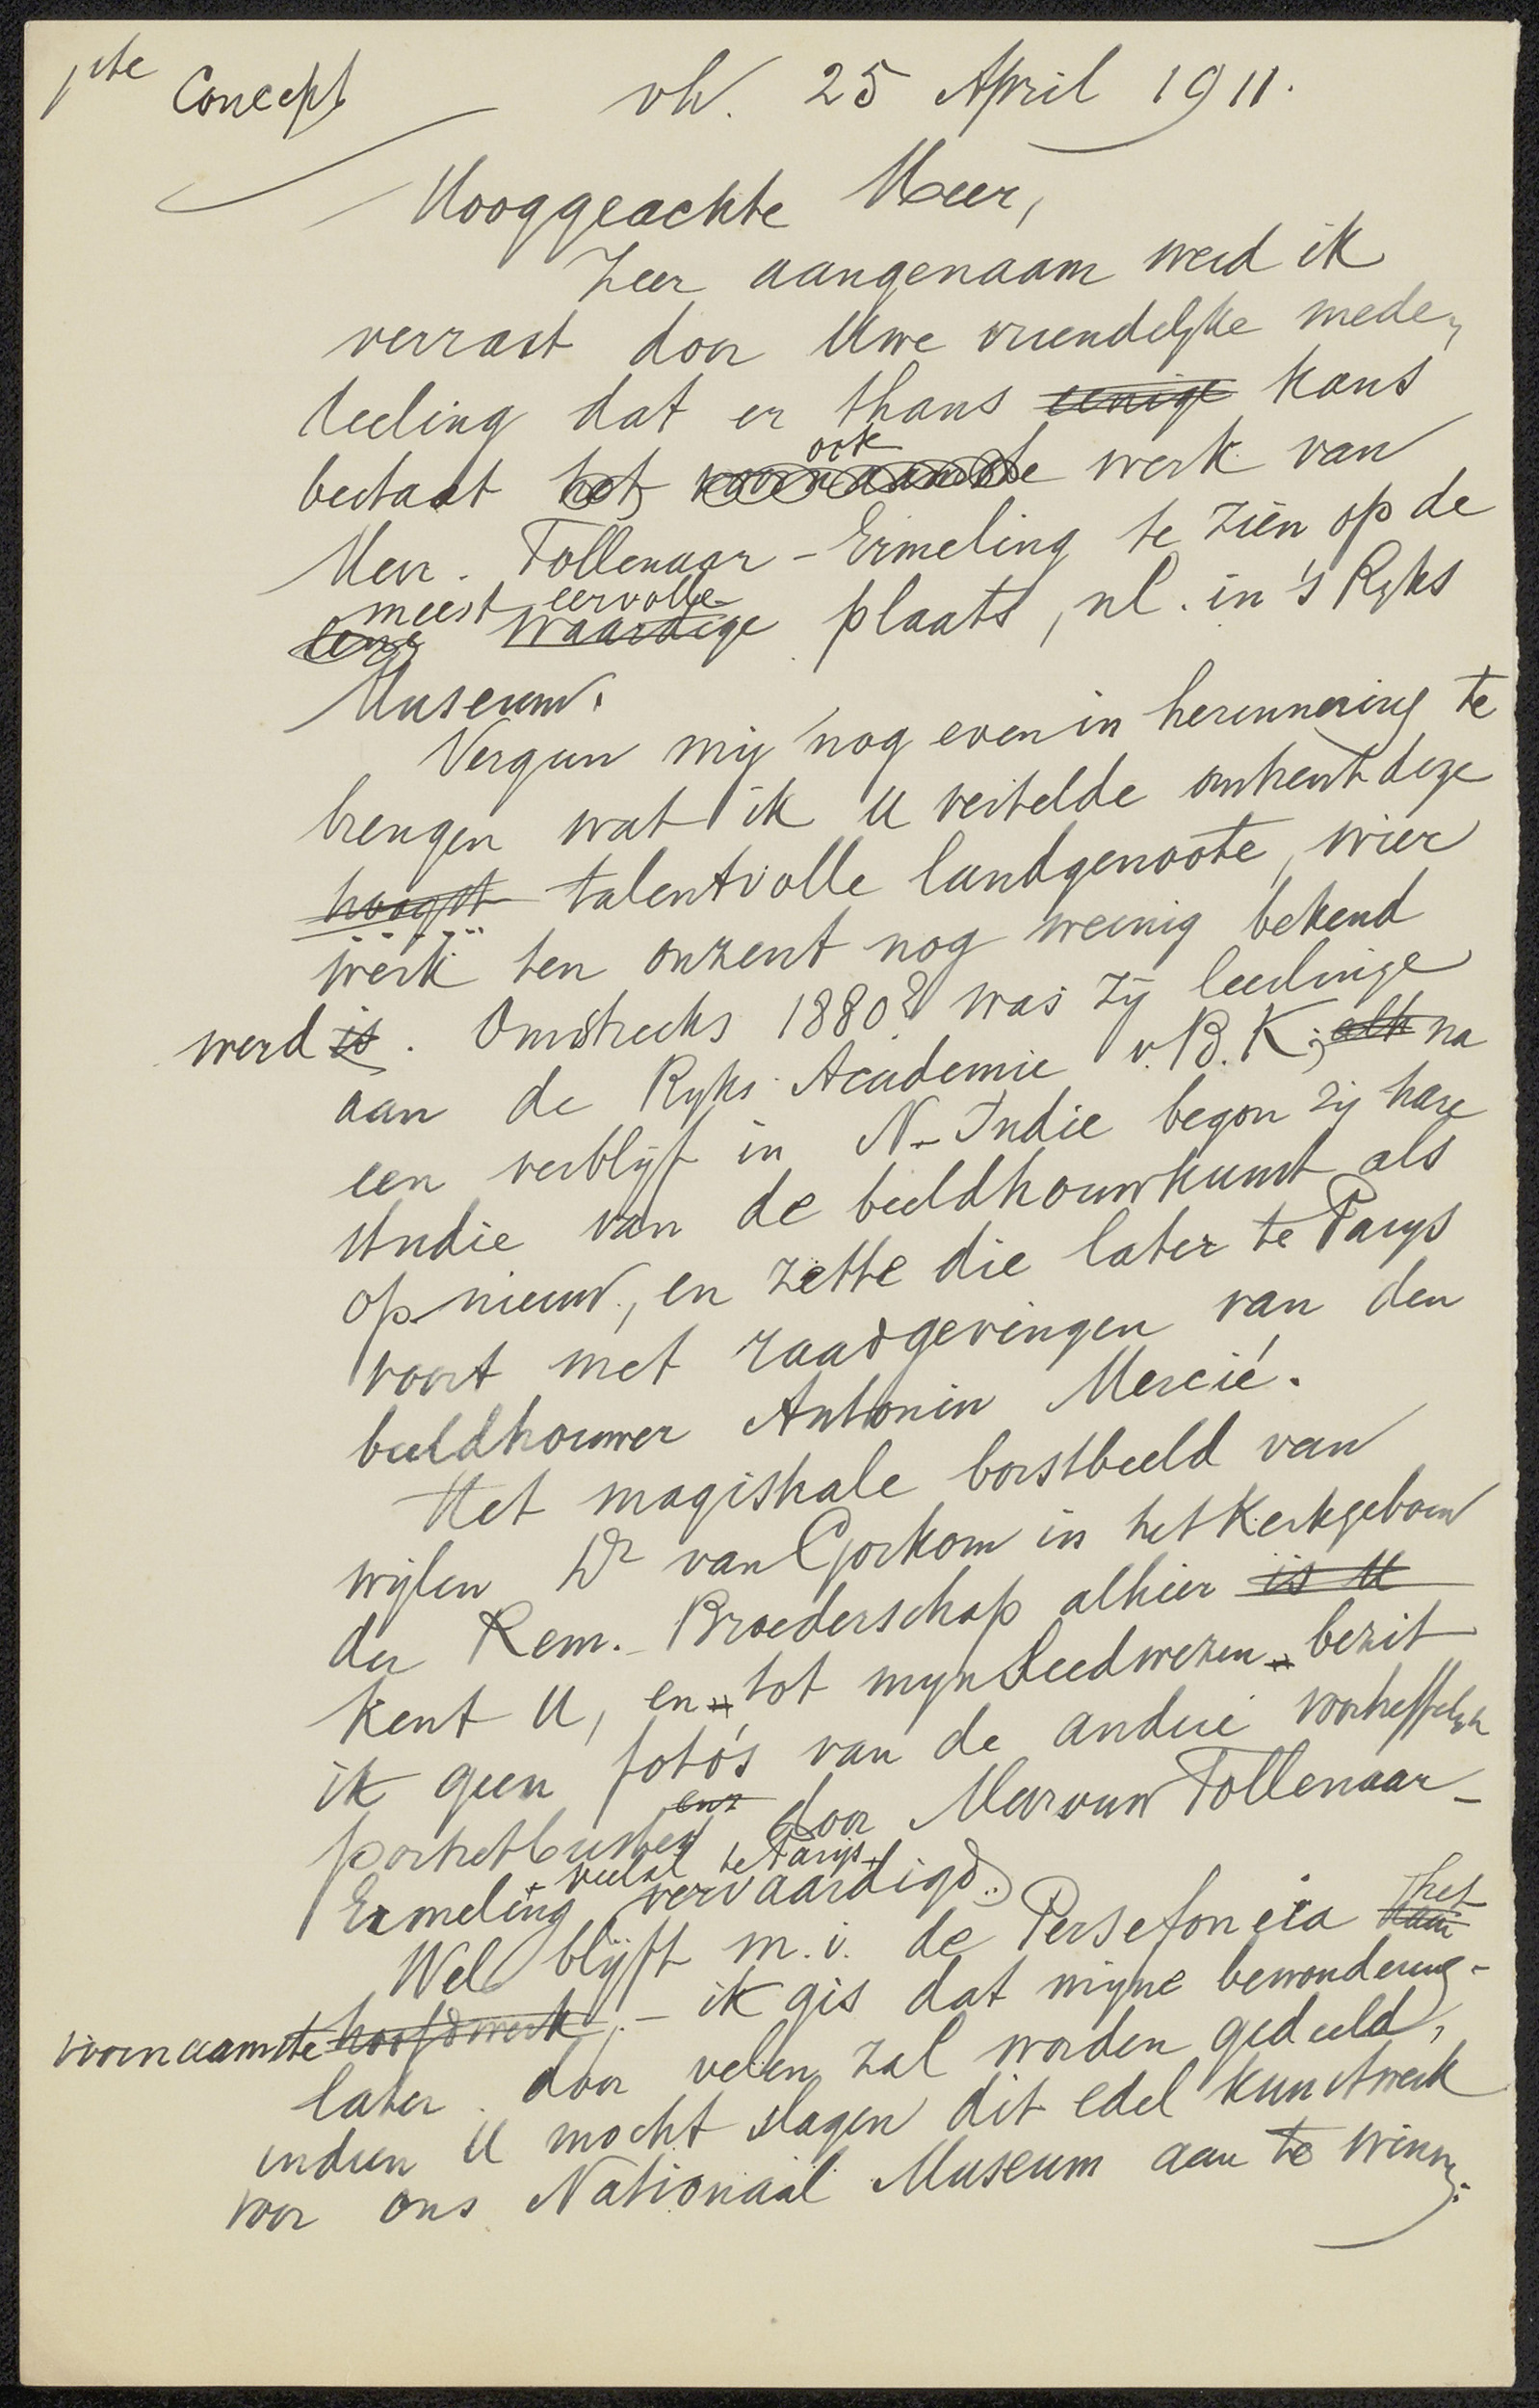 1ste Concept vh. 25 April 1911.
Hooggeachte Heer,
Zeer aangenaam werd ik
verrast door Uwe vriendelijke mede-
deeling dat er thans eenige kans
bestaat het voornaamste ook werk van
Mevr. Tollenaar-Ermeling te zien op de
eene waardige meest eervolle plaats, nl. in 's Rijks
Museum.
Vergun mij nog even in herinnering te
brengen wat ik U vertelde omtrent deze
hoogst talentvolle landgenoote, wier
werk ten onzent nog weinig bekend
werd is. Omstreeks 1880? was zij leerlinge
aan de Rijks Academie v. B. K.; na
een verblijf in N-Indie begon zij hare
studie van de beeldhouwkunst als
op nieuw, en zette die later te Parijs
voort met raadgevingen van den
beeldhouwer Antonin Mercié.
Het magistrale borstbeeld van
wijlen Dr van Gorkom in het Kerkgebouw
der Rem. Broederschap alhier is U
kent U, en tot mijn leedwezen bezit
ik geen foto's van de andere voortreffelijke
portretbusten enz door Mevrouw Tollenaar-
Ermeling veelal te Parijs vervaardigd.
Wel blijft m.i. de Persefoneia haar het
voornaamste hoofdwerk, - ik gis dat mijne bewondering
later door velen zal worden gedeeld,
indien U mocht slagen dit edel kunstwerk
voor ons Nationaal Museum aan te winnen.